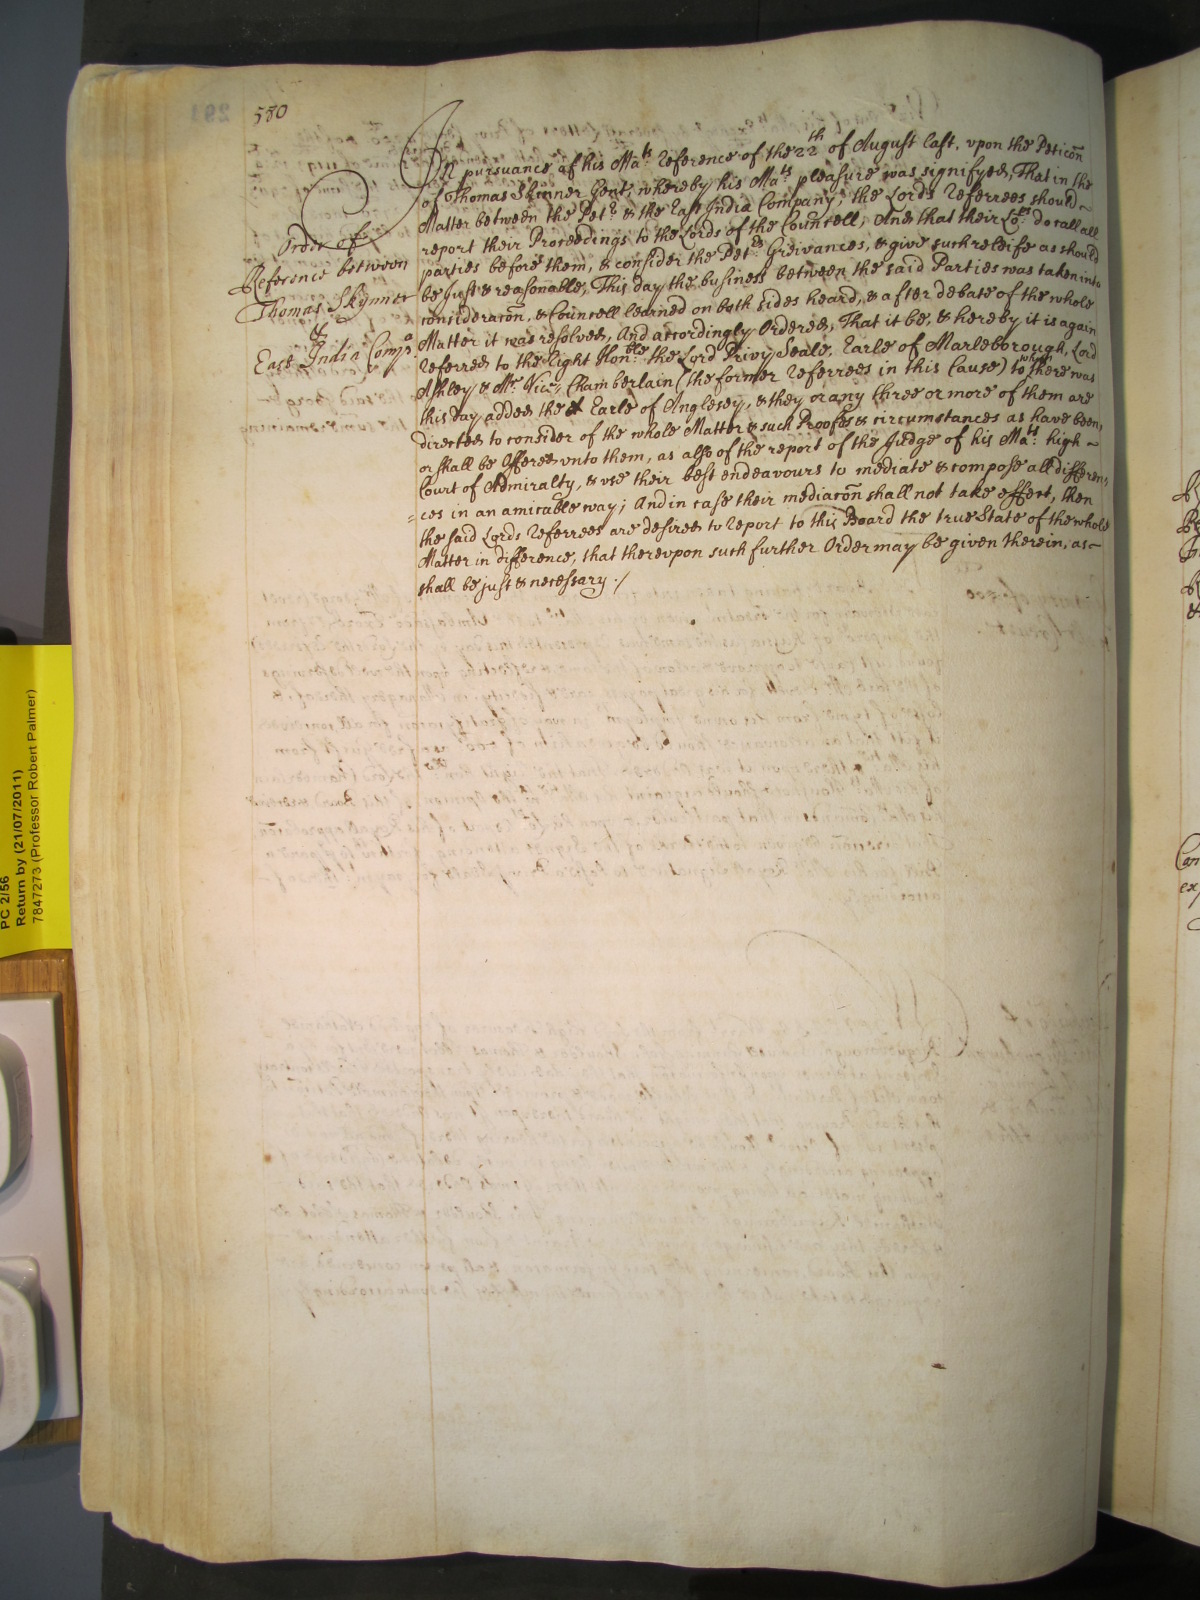 580
Order of
Reference between
Thomas Skynner
&
East India Compa
In pursuance of his Mats Reference of the 22th of August last, vpon the Peticon
of Thomas Skinner Gent, whereby his Mats pleasure was signifyed, That in the
Matter between the Petr & the East India Company, the Lords Referrees should
report their Proceedings to the Lords of the Councell, And that their Lops do call all
parties before them, & consider the Petrs Greivances, & give such releife as should
be Just & reasonable, This day the business between the said Parties was taken into
consideracon, & Councell learned on both sides heard, & after debate of the whole
Matter it was resolved, And accordingly Ordered, That it be, & hereby it is again
Referred to the Right Honble the Lord Privy Seale, Earle of Marleborough, Lord
Ashley & Mr Vice Chamberlain (the former Referrees in this Cause) to whom there was
this day added the Earle of Anglesey, & they or any three or more of them are
directed to consider of the whole Matter & such Proofes & circumstances as have been,
or shall be Offered vnto them, as also of the report of the Judge of his Mats high
Court of Admiralty, & vse their best endeavours to mediate & compose all differen,
=ces in an amicable way; And in case their mediacon shall not take effect, then
the said Lords Referrees are desired to report to this Board the true State of the whole
Matter in difference, that therevpon such further Order may be given therein, as
shall be just & necessary ./
PC 2/56
Return by (21/07/2011)
7847273 (Professor Robert Palmer)